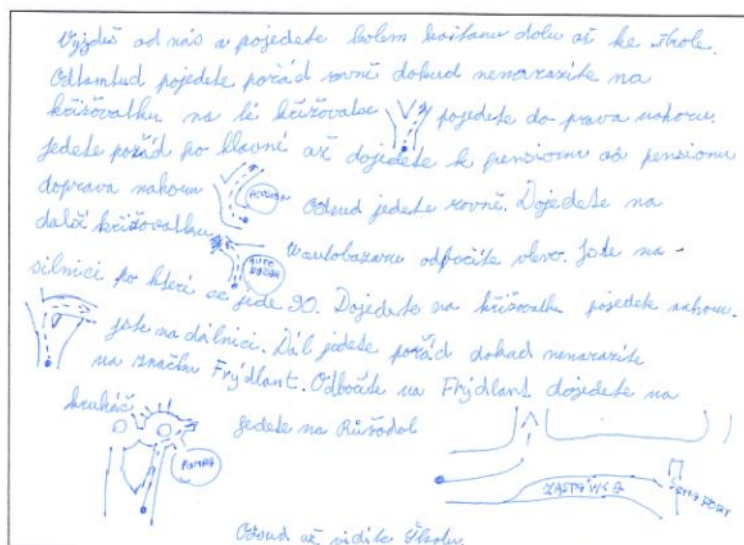 Vyjdeš od nás a pojedete kolem kaštanu dolu až ke škole.
Odtamtud pojedete pořád rovně dokud nenarazíte na
křižovatku na té křižovatce pojedete do prava nahoru.
Jedete pořád po hlavné až dojedete k pensionu od pensionu
doprava nahoru PENSION Odsud jedete rovně. Dojedete na
další křižovatku AUTO BAZAR U autobazaru odbočíte vlevo. Jste na
silnici po které se jede 90. Dojedete na křižovatku pojedete nahoru.
jste na dálnici. Dál jedete pořád dokud nenarazíte
na značku Frýdlant. Odbočíte na Frýdlant dojedete na
kruháč jedete na Růžodol
ZASTÁVKA
Odsud už vidíte školu.